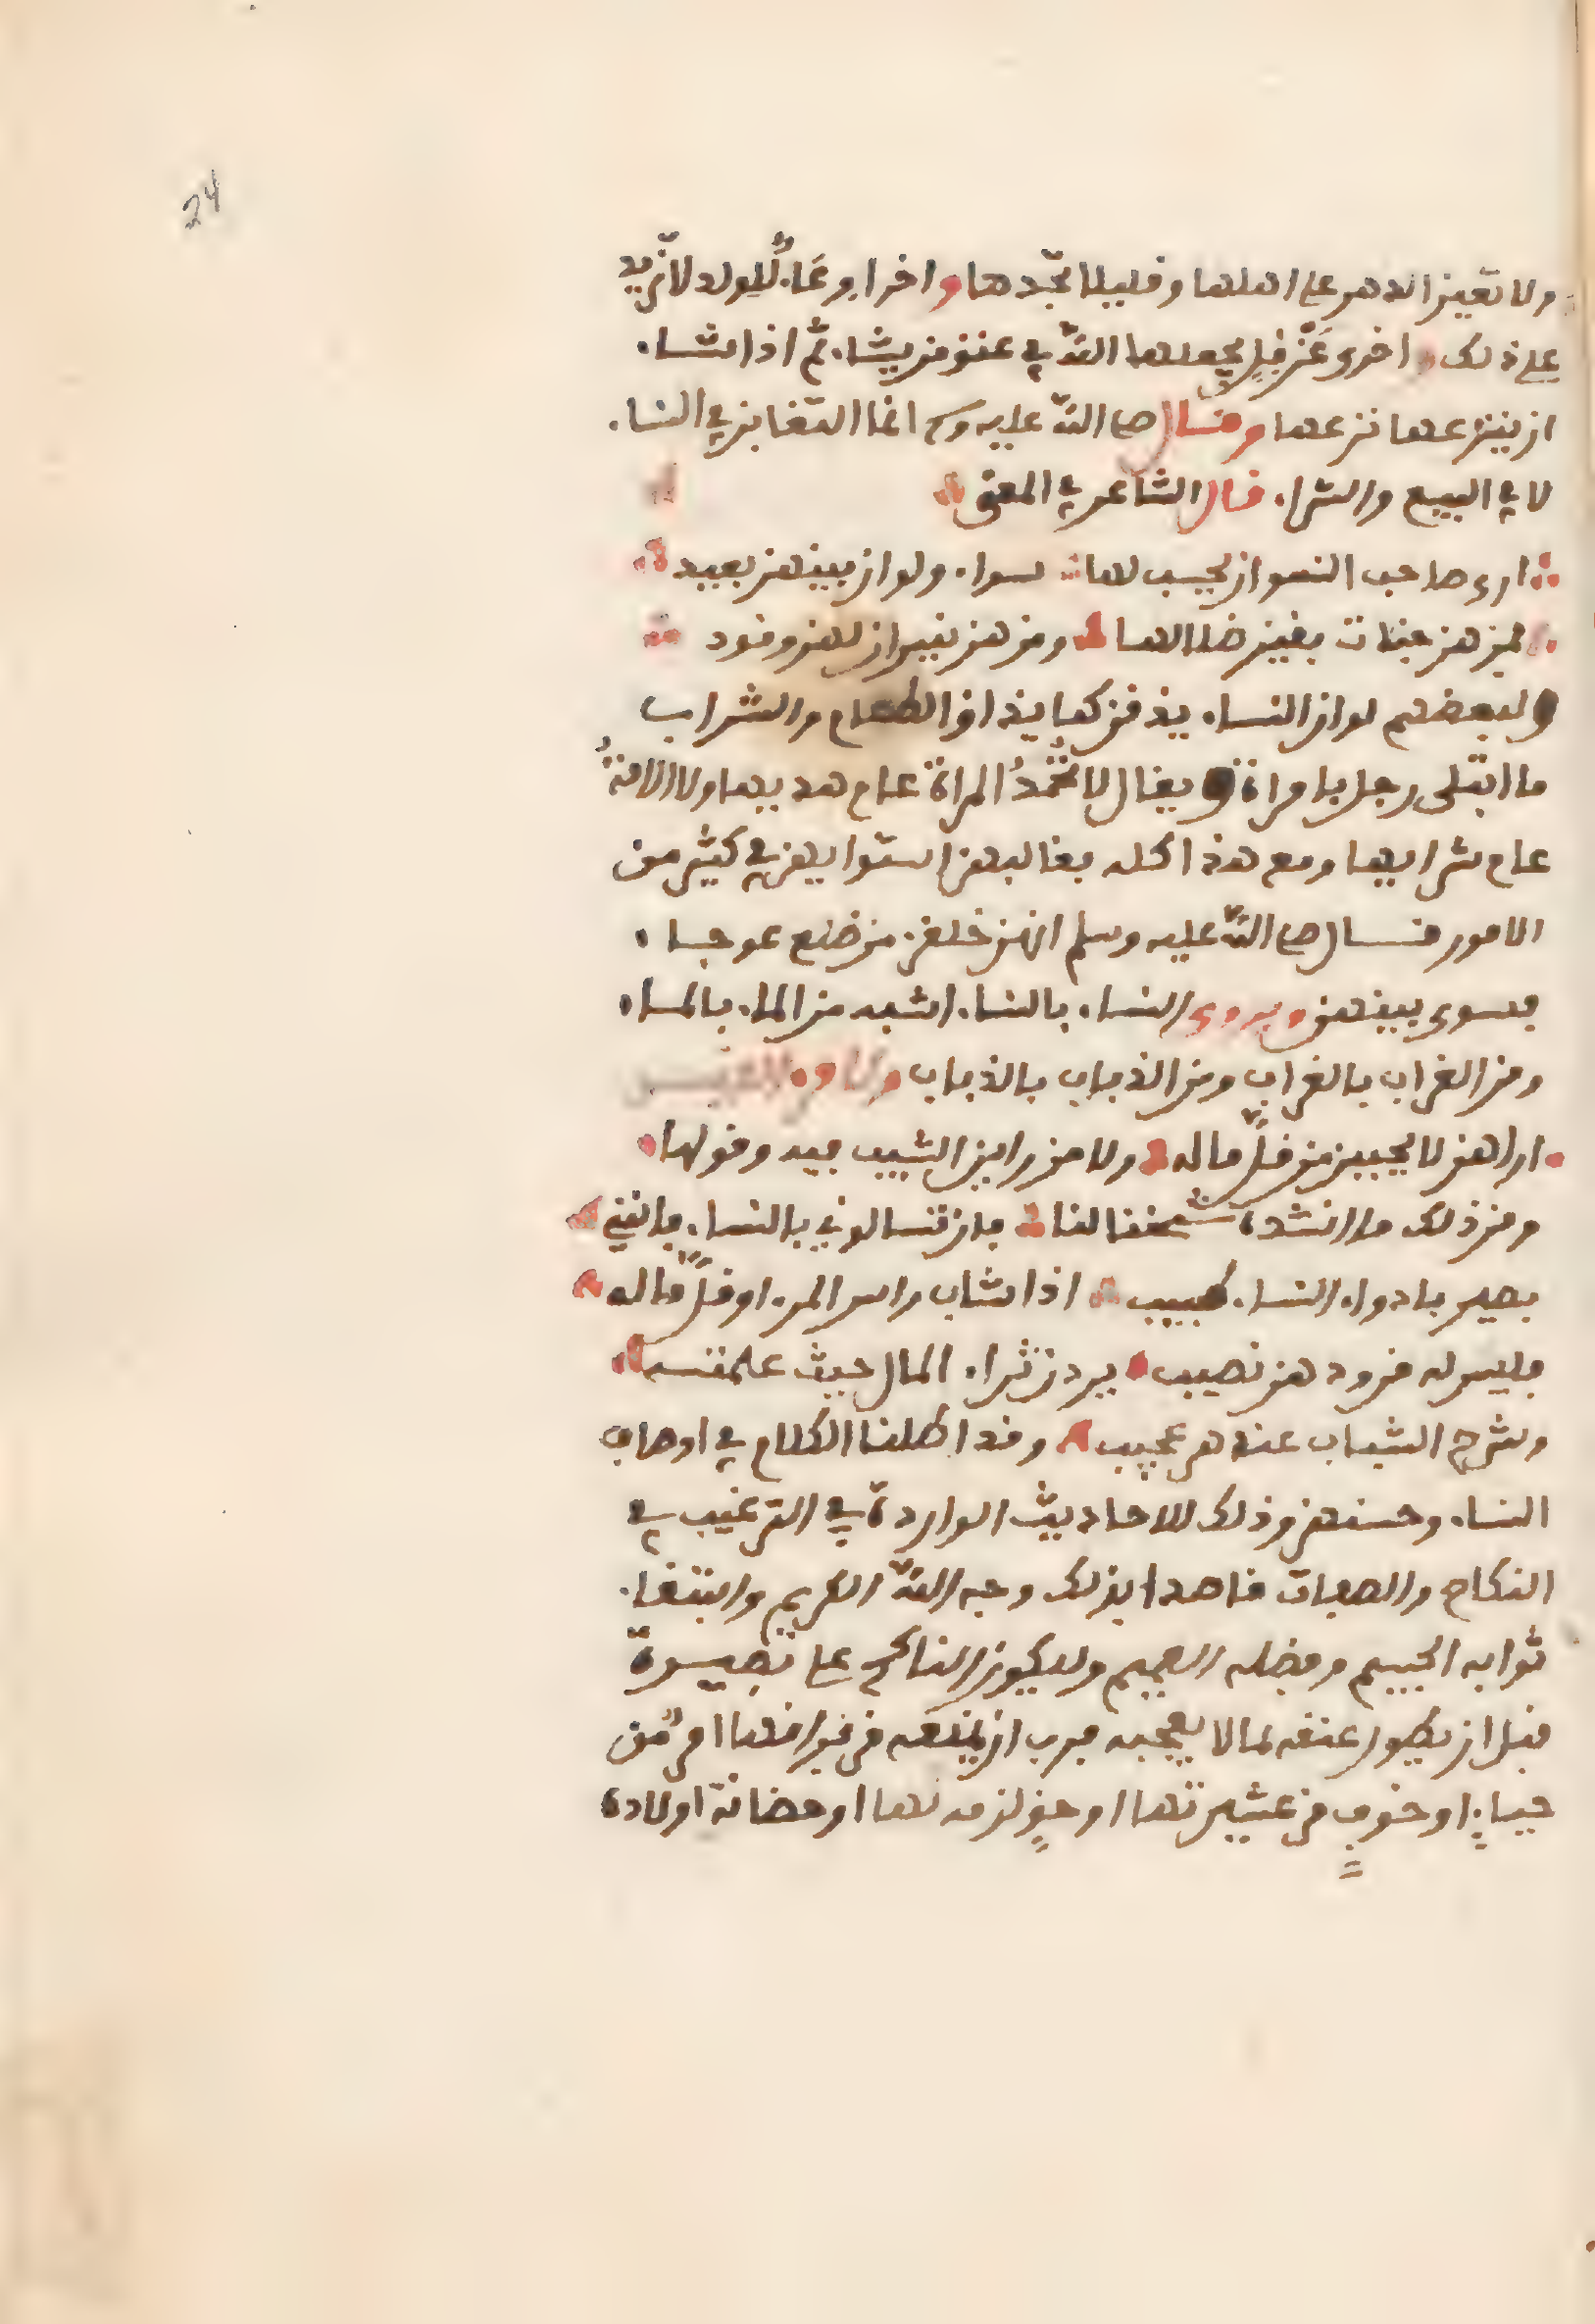 24
ولا تعين الدهر على اهلها وقليلا تجدها واخرا وعاء للولد لا تزيد
على ذلك واخرى غل قمل يجعلها الله في عنق من يشاء ثم اذا شاء
ان ينزعها نزعها وقال صلى الله عليه وسلم انما التغابن في النساء
لا في البيع والشراء قال الشاعر في المعنى
ارى صاحب النسوان يحسب انها سواء ولوان بينهن بعيد
فمنهن جنات يفيئ ظلالها ومنهن نيران لهن وقود
ولبعضهم لو ان النساء يذقن كما يذاق الطعام والشراب
ما ابتلى رجل بامراة ويقال لا تحمد المراة عام هديها ولا الامة
عام شرايها ومع هذا كله فغالبهن استوايهن في كثير من
الامور قال صلى الله عليه وسلم انهن خلقن من ضلع عوجاء
فسوى بينهن ويروى النساء بالنساء اشبه من الماء بالماء
ومن الغراب بالغراب ومن الذباب بالذباب
اراهن لا يحببن من قل ماله ولا من راين الشيب فيه وقولها
ومن ذلك ما انشده شيخنا لنا فان تسالوني بالنساء فانني
بصير بادواء النساء طبيب اذا شاب راس المرء او قل ماله
فليس له من ودهن نصيب يردن ثراء المال حيث علمنه
وشرخ الشباب عندهن عجيب وقد اطلنا الكلام في اوصاف
النساء وحسنهن وذلك للاحاديث الواردة في الترغيب في
النكاح والصفات قاصدا بذلك وجه الله الكريم وابتغاء
ثوابه الجسيم وفضله العميم وليكون الناكح على بصيرة
قبل ان يطول عنقه لما لا يعجبه فرب ان يمنعه من فراقها امر من
حياء او خوف من عشيرتها او حق لزمه لها او حضانة اولاده